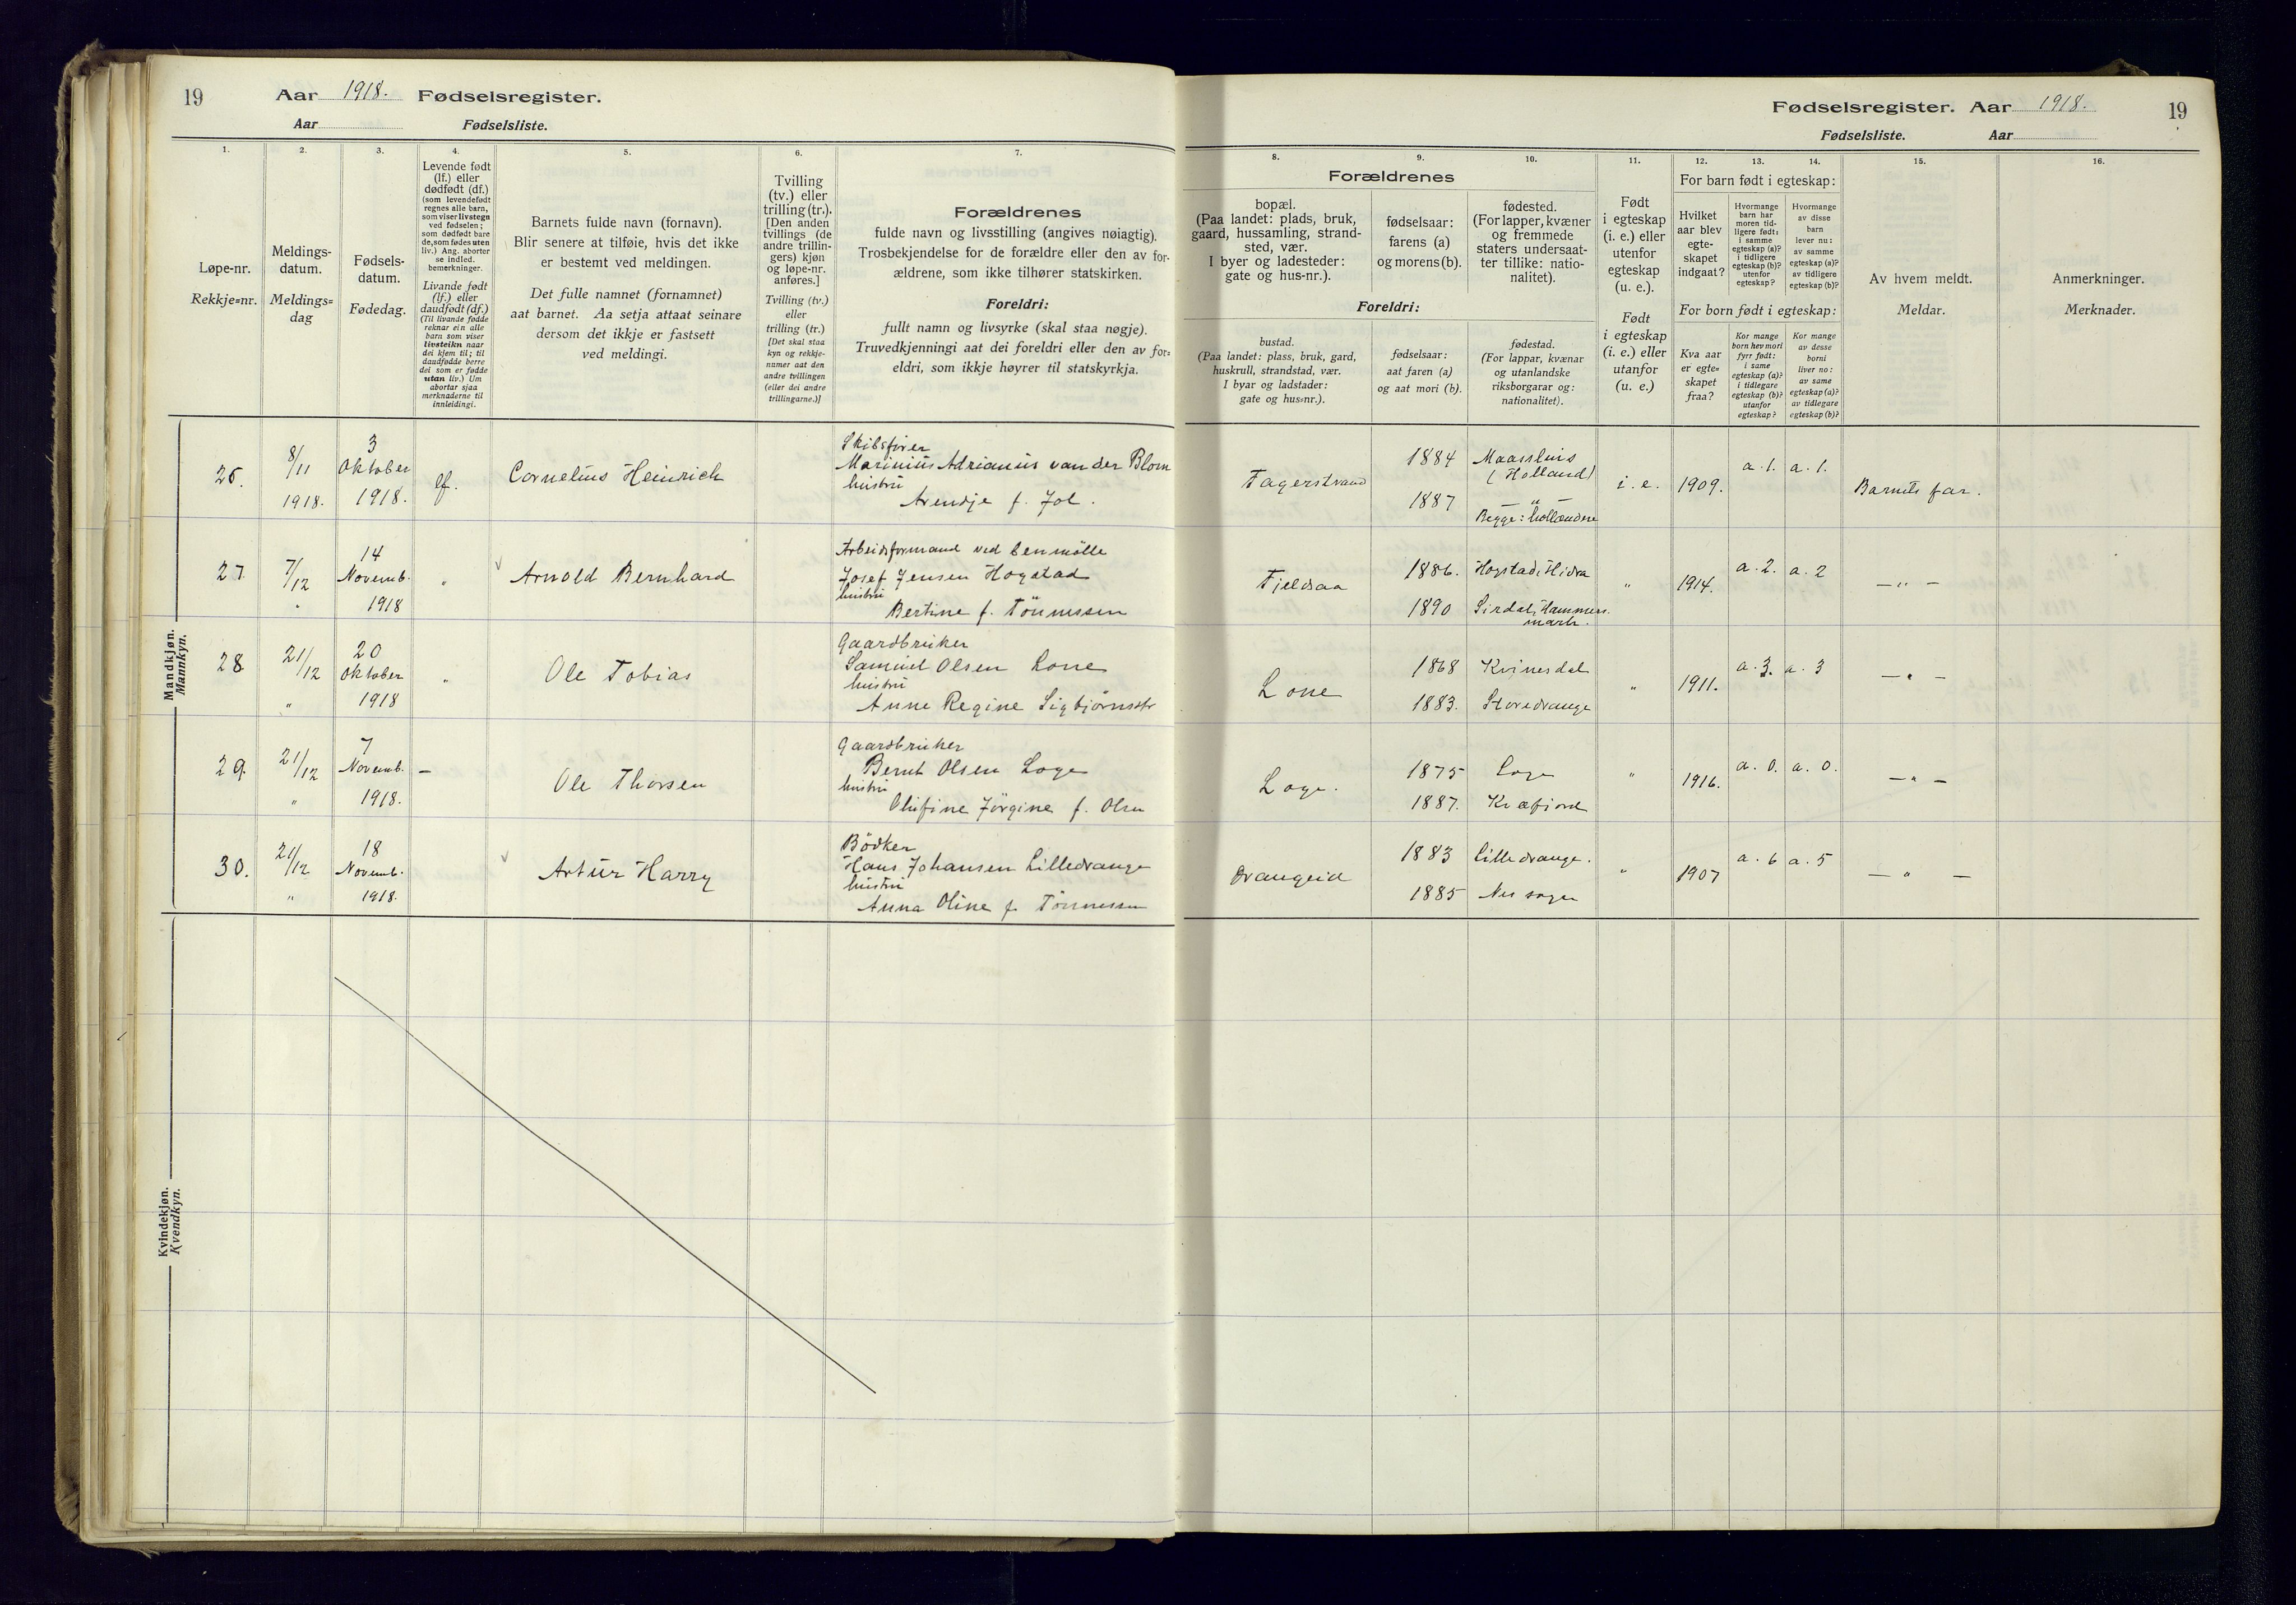 19
Aar 1918. Fødselsregister.
Aar Fødselsliste.
Fødselsregister. Aar 1918.
19
Fødselsliste. Aar
1.
Løpe-nr.
Rekkje=nr.
2.
Meldings-
datum.
Meldings=
dag
3.
Fødsels-
datum.
Fødedag.
4.
Levende født
(lf.) eller
dødfødt (df.)
(som levendefødt
regnes alle barn,
som viser livstegn
ved fødselen;
som dødfødt bare
de, som fødes uten
liv.) Ang. aborter
se indled.
bemerkninger.
Livande født
(lf.) eller
daudfødt (df.)
(Til livande fødde
reknar ein alle
barn som viser
livsteikn naar
dei kjem til; til
daudfødde berre
dei som er fødde
utan liv.) Um
abortar sjaa
merknaderne til
innleidingi.
5.
Barnets fulde navn (fornavn).
Blir senere at tilføie, hvis det ikke
er bestemt ved meldingen.
Det fulle namnet (fornamnet)
aat barnet. Aa setja attaat seinare
dersom det ikkje er fastsett
ved meldingi.
6.
Tvilling
(tv.) eller
trilling (tr.).
[Den anden
tvillings (de
andre trillin-
gers) kjøn
og løpe-nr.
anføres.]
Tvilling (tv.)
eller
trilling (tr.)
[Det skal staa
kyn og rekkje-
numer aat den
andre tvillingen
(eller dei andre
trillingarne.)]
7.
Forældrenes
fulde navn og livsstilling (angives nøiagtig).
Trosbekjendelse for de forældre eller den av for-
ældrene, som ikke tilhører statskirken.
Foreldri:
fullt namn og livsyrke (skal staa nøgje).
Truvedkjenningi aat dei foreldri eller den av for=
eldri, som ikkje høyrer til statskyrkja.
Forældrenes
8.
bopæl.
(Paa landet: plads, bruk,
gaard, hussamling, strand-
sted, vær.
I byer og ladesteder:
gate og hus-nr.).
9.
fødselsaar:
farens (a)
og morens (b).
10.
fødested.
(For lapper, kvæner
og fremmede
staters undersaat-
ter tillike: natio-
nalitet).
Foreldri:
bustad.
(Paa landet: plass, bruk, gard,
huskrull, strandstad, vær.
I byar og ladstader:
gate og hus=nr.).
fødselsaar:
aat faren (a)
og aat mori (b).
fødestad.
(For lappar, kvænar
og utanlandske
riksborgarar og:
nationalitet).
11.
Født
i egteskap
(i. e.) eller
utenfor
egteskap
(u. e.).
Født
i egteskap
(i. e.) eller
utanfor
(u. e.)
12. 13. 14.
For barn født i egteskap:
Hvilket
aar blev
egte-
skapet
indgaat?
Hvormange
barn har
moren tid-
ligere født:
i samme
egteskap (a)?
i tidligere
egteskap (b)?
utenfor
egteskap?
Hvormange
av disse
barn
lever nu:
av samme
egteskap (a)?
av tidligere
egteskap (b)?
For born født i egteskap:
Kva aar
er egte=
skapet
fraa?
Kor mange
born hev mori
fyrr født:
i same
egteskap (a)?
i tidlegare
egteskap (b)?
utanfor
egteskap?
Kor mange
av desse
borni
liver no:
av same
egteskap (a)?
av tidlegare
egteskap (b)?
15.
Av hvem meldt.
Meldar.
16.
Anmerkninger.
Merknader.
Mandkjøn.
Mannkyn.
26. 8/11 1918. 3 Oktober 1918. lf. Cornelius Heinrich
Skibsfører
Marinius Adrianus van der Blom
hustru
Arendje f. Jol.
Fagerstrand 1884 Maassluis
(Holland)
1887 — " —
Begge: hollændere
i. e. 1909. a. 1. a. 1. Barnets far.
27 7/12 " 14 Novemb. 1918 " Arnold Bernhard
Arbeidsformand ved benmölle
Josef Jensen Hogstad
hustru
Bertine f. Tönnessen
Fjeldsaa 1886. Hogstad, Hidra
1890 Sirdal, Hammers
mark.
" 1914. a. 2. a. 2 — " —
28 21/12 " 20 Oktober 1918 " Ole Tobias
Gaardbruker
Samuel Olsen Lone
hustru
Anne Regine Sigbjörnsdtr
Lone 1868 Kvinesdal
1883. Storedrange
" 1911. a. 3. a. 3 — " —
29. 21/12 " 7 Novemb. 1918. — Ole Thorsen
Gaardbruker
Bernt Olsen Loge
hustru
Olufine Jörgine f. Olsen
Loge. 1875 Loge
1887. Kvæfjord
" 1916. a. 0. a. 0. — " —
30. 21/12 " 18 Novemb. 1918. Artur Harry
Bödker
Hans Johansen Lilledrange
hustru
Anna Oline f. Tönnessen
Drangeid 1883 Lilledrange.
1885 Nes sogn
" 1907 a. 6 a. 5 — " —
Kvindekjøn.
Kvendkyn.